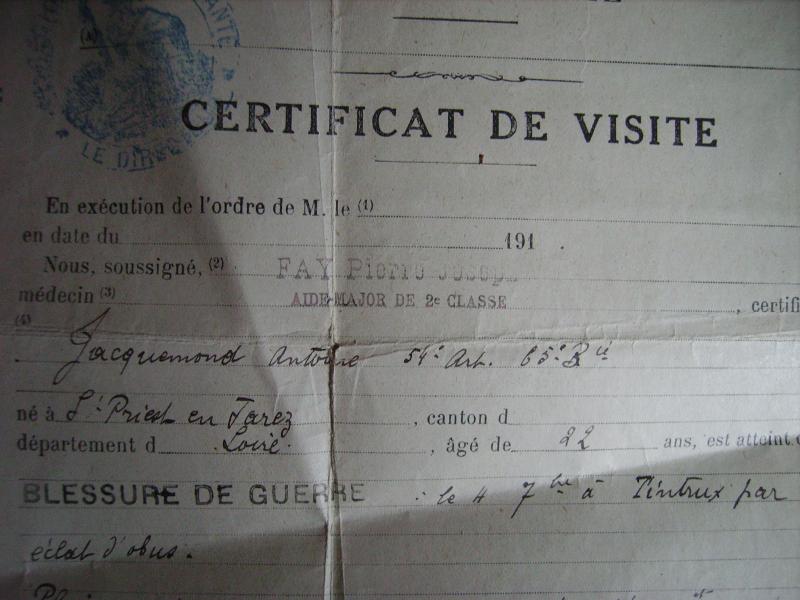 (A)
LE DIR
CERTIFICAT DE VISITE
En exécution de l'ordre de M. le (1)
en date du 191 .
Nous, soussigné, (2) FAY Pierre Joseph
médecin (3) AIDE-MAJOR DE 2e CLASSE , certifi
(4)
Jacquemond Antoine 54e Art. 65e Bie
né à St Priest en Jarez , canton d
département d Loire , âgé de 22 ans, est atteint
BLESSURE DE GUERRE : le 4 7bre à par
éclat d'obus.